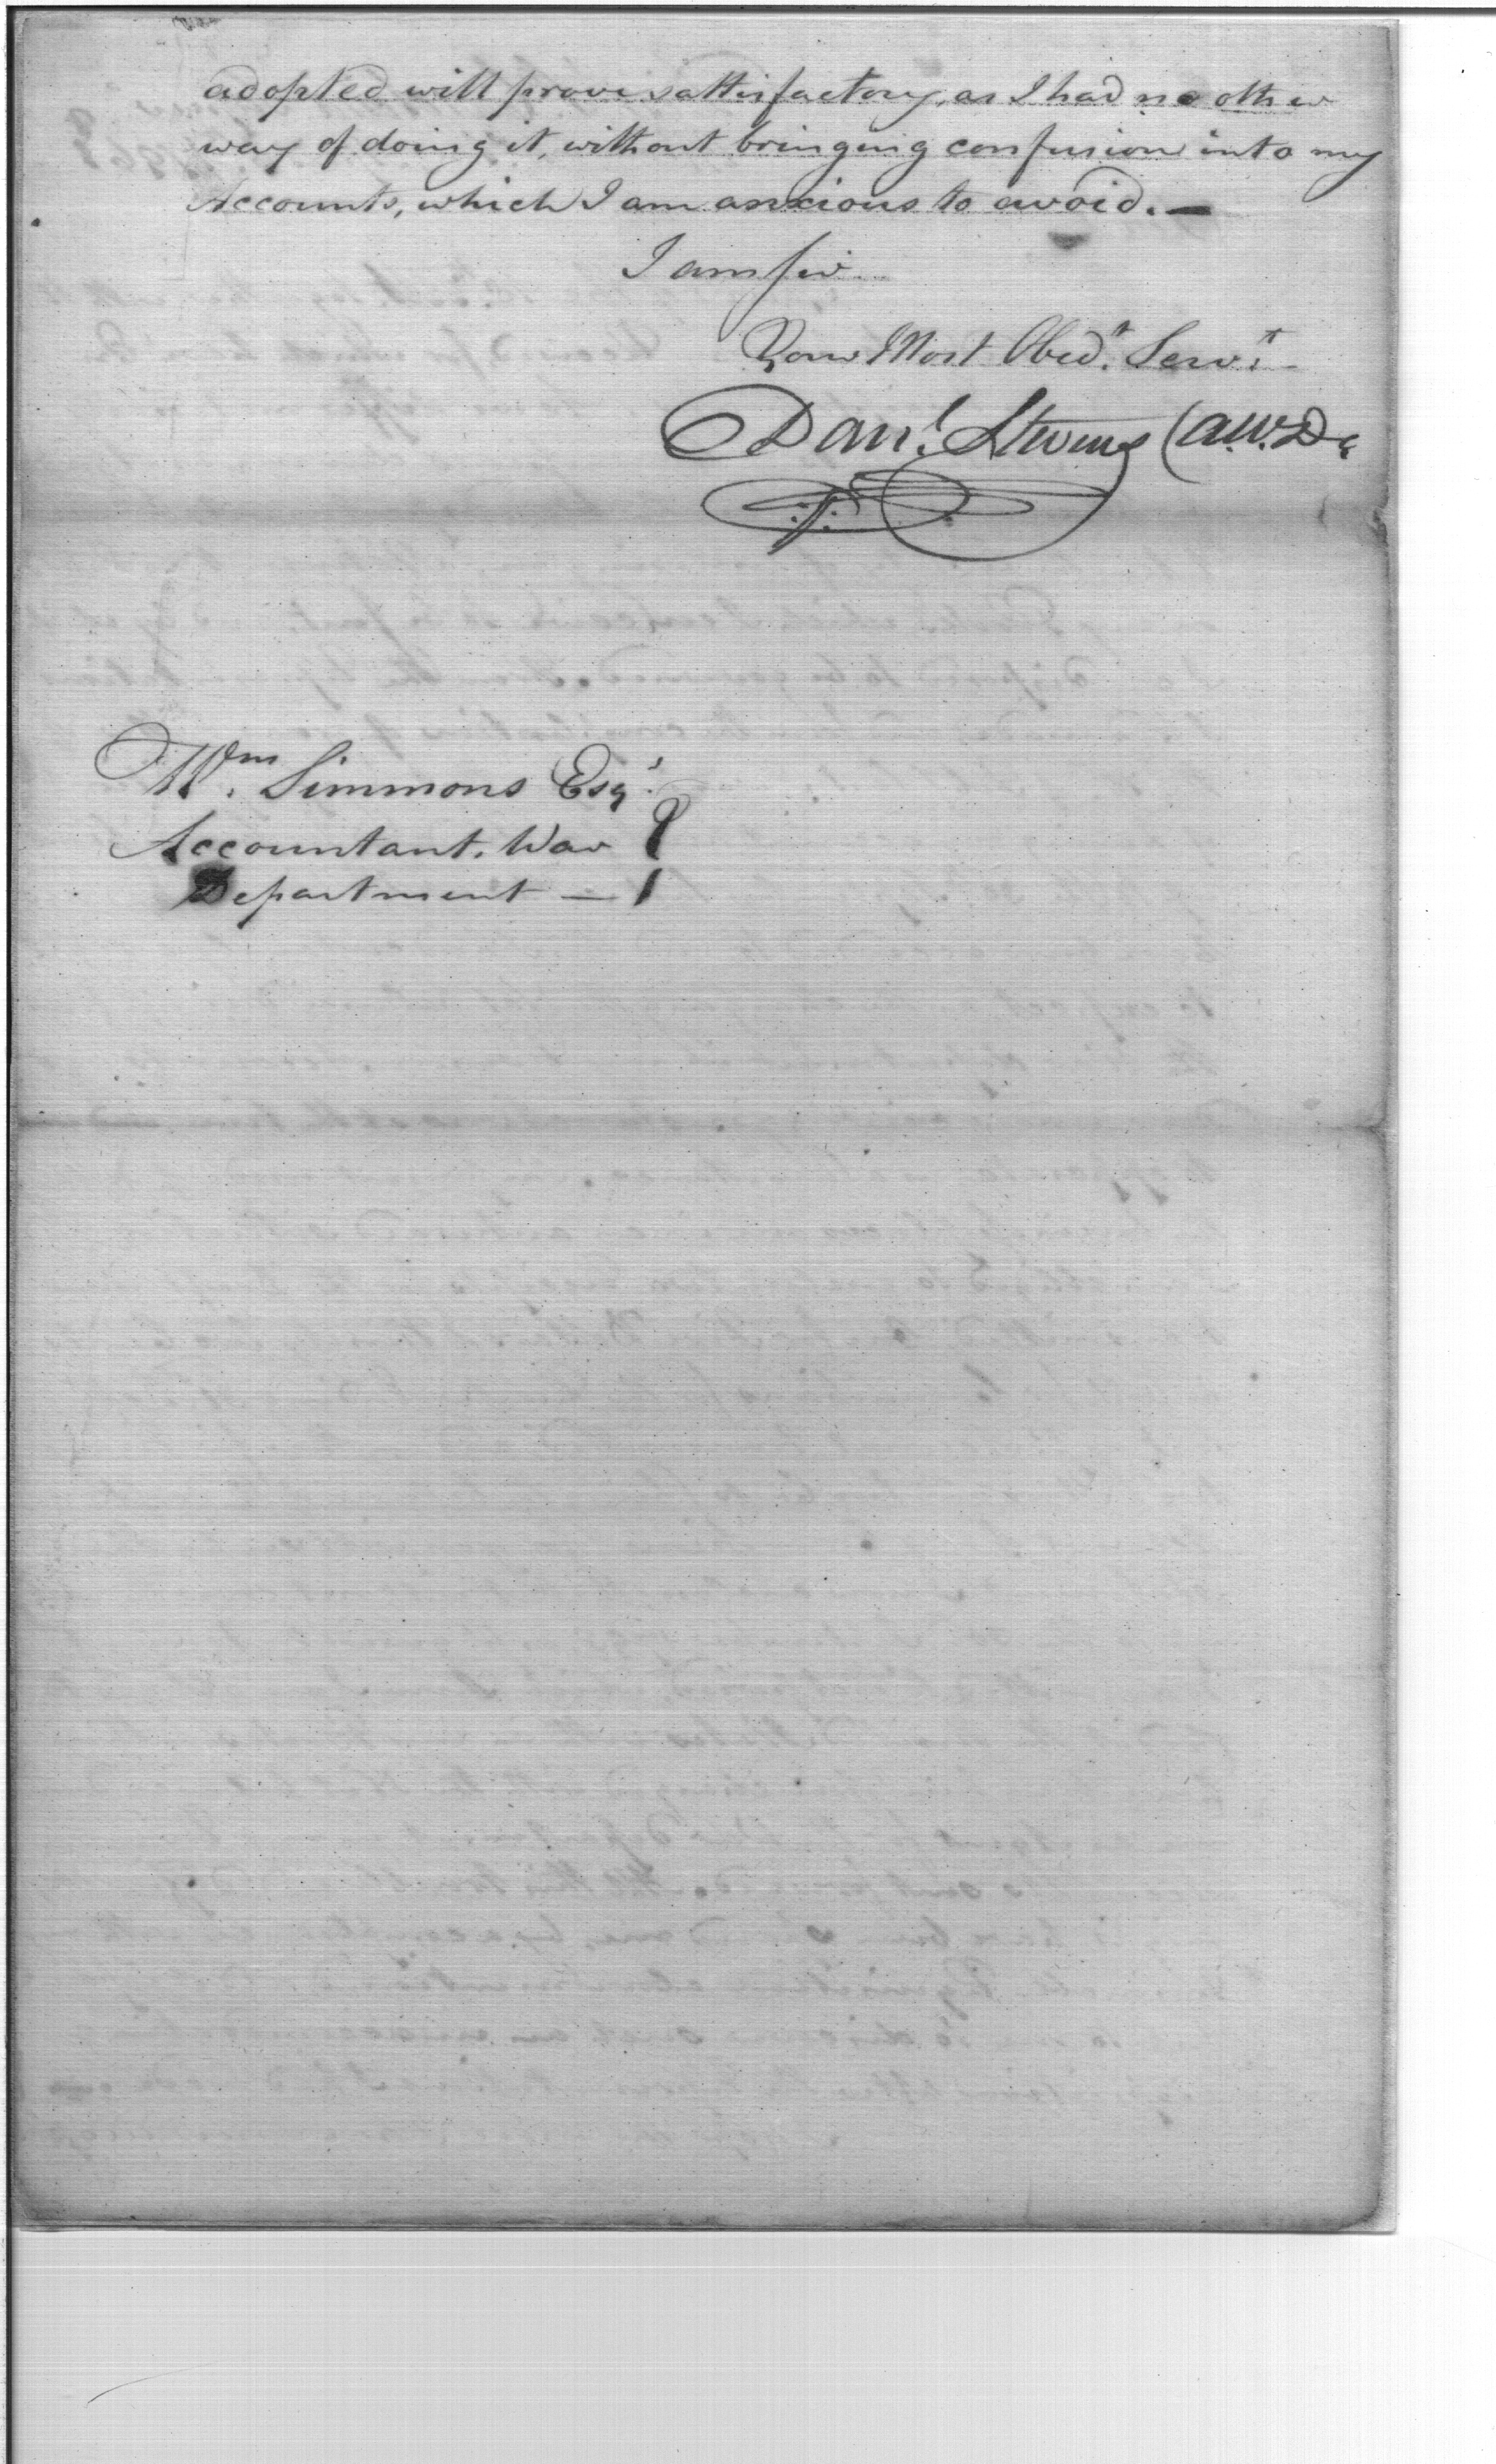 adopted will prove sattisfactory, as I had no other
way of doing it, without bringing confusion into my
Accounts, which I am anxious to avoid. —
I am Sir
Your Most Obedt. Servt.
Danl. Stevens (A.W.D
Wm. Simmons Esqr.
Accountant, War
Department —